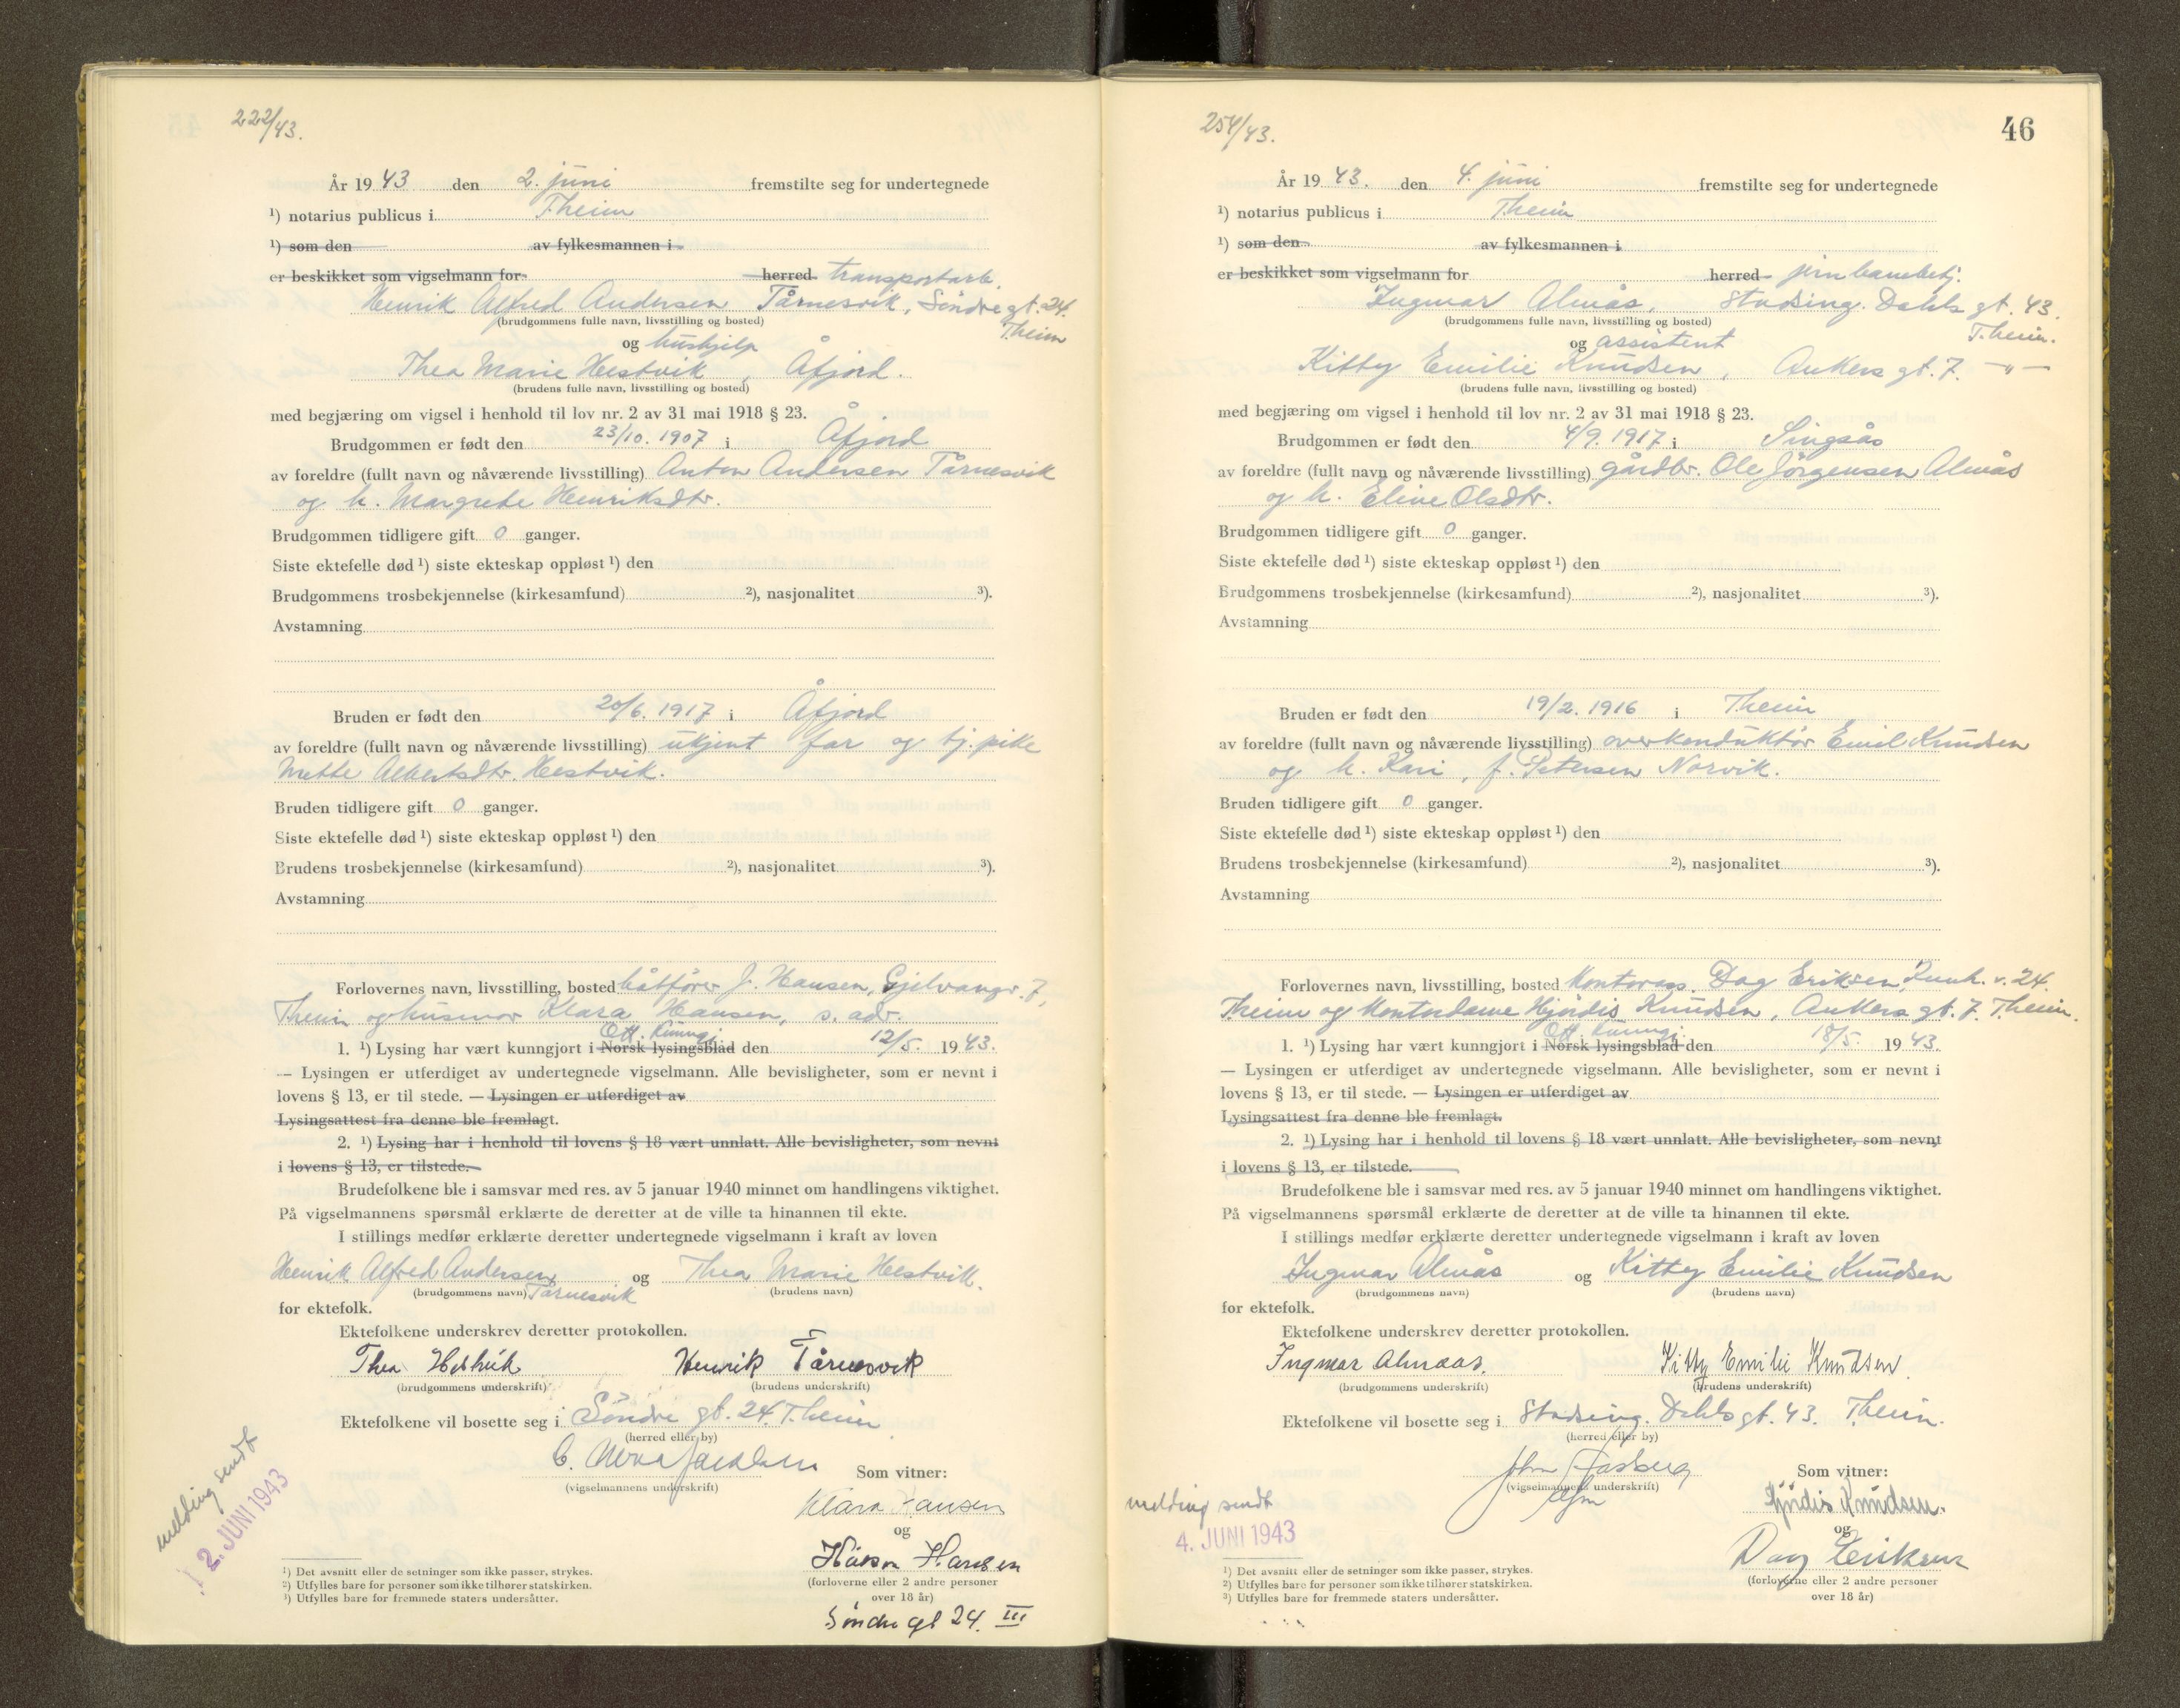 222/43.
År 19 43 den 2. juni fremstilte seg for undertegnede
¹) notarius publicus i Theim
¹) som den av fylkesmannen i
er beskikket som vigselmann for herred transportarb.
Henrik Alfred Andersen Tårnesvik, Söndregt. 24.
(brudgommens fulle navn, livsstilling og bosted) Theim
og hushjelp
Thea Marie Hestvik, Åfjord.
(brudens fulle navn, livsstilling og bosted)
med begjæring om vigsel i henhold til lov nr. 2 av 31 mai 1918 § 23.
Brudgommen er født den 23/10. 1907 i Åfjord
av foreldre (fullt navn og nåværende livsstilling) Anton Andersen Tårnesvik
og h. Margrete Henriksdtr.
Brudgommen tidligere gift 0 ganger.
Siste ektefelle død ¹) siste ekteskap oppløst ¹) den
Brudgommens trosbekjennelse (kirkesamfund) ²), nasjonalitet ³).
Avstamning
Bruden er født den 20/6. 1917 i Åfjord
av foreldre (fullt navn og nåværende livsstilling) ukjent far og tj.pike
Mette Albertsdtr. Hestvik.
Bruden tidligere gift 0 ganger.
Siste ektefelle død ¹) siste ekteskap oppløst ¹) den
Brudens trosbekjennelse (kirkesamfund) ²), nasjonalitet ³).
Avstamning
Forlovernes navn, livsstilling, bosted båtfører J. Hansen, Gjelvangv. 7,
Theim og husmor Klara Hansen, s. adr.
Off. kunngj.
1. ¹) Lysing har vært kunngjort i Norsk lysingsblad den 12/5. 19 43.
— Lysingen er utferdiget av undertegnede vigselmann. Alle bevisligheter, som er nevnt i
lovens § 13, er til stede. — Lysingen er utferdiget av
Lysingsattest fra denne ble fremlagt.
2. ¹) Lysing har i henhold til lovens § 18 vært unnlatt. Alle bevisligheter, som nevnt
i lovens § 13, er tilstede.
Brudefolkene ble i samsvar med res. av 5 januar 1940 minnet om handlingens viktighet.
På vigselmannens spørsmål erklærte de deretter at de ville ta hinannen til ekte.
I stillings medfør erklærte deretter undertegnede vigselmann i kraft av loven
Henrik Alfred Andersen og Thea Marie Hestvik.
(brudgommens navn) Tårnesvik (brudens navn)
for ektefolk.
Ektefolkene underskrev deretter protokollen.
Thea Hestvik Henrik Tårnesvik
(brudgommens underskrift) (brudens underskrift)
Ektefolkene vil bosette seg i Söndre gt. 24. Theim
(herred eller by)
(vigselmannens underskrift)
Som vitner:
Klara Hansen
og
Håkon Hansen
(forloverne eller 2 andre personer
over 18 år)
Söndre gt 24. III
melding sendt
2. JUNI 1943
¹) Det avsnitt eller de setninger som ikke passer, strykes.
²) Utfylles bare for personer som ikke tilhører statskirken.
³) Utfylles bare for fremmede staters undersåtter.
254/43.
46
År 19 43. den 4. juni fremstilte seg for undertegnede
¹) notarius publicus i Theim
¹) som den av fylkesmannen i
er beskikket som vigselmann for herred jernbanebetj.
Ingmar Almås, Stadsing. Dahls gt. 43.
(brudgommens fulle navn, livsstilling og bosted) Theim.
og assistent
Kitty Emilie Knudsen, Ankers gt. 7. —"—
(brudens fulle navn, livsstilling og bosted)
med begjæring om vigsel i henhold til lov nr. 2 av 31 mai 1918 § 23.
Brudgommen er født den 4/9. 1917 i Singsås
av foreldre (fullt navn og nåværende livsstilling) gårdbr. Ole Jörgensen Almås
og h. Eline Olsdtr.
Brudgommen tidligere gift 0 ganger.
Siste ektefelle død ¹) siste ekteskap oppløst ¹) den
Brudgommens trosbekjennelse (kirkesamfund) ²), nasjonalitet ³).
Avstamning
Bruden er født den 19/2. 1916 i Theim
av foreldre (fullt navn og nåværende livsstilling) overkonduktör Emil Knudsen
og h. Kari, f. Petersen Norvik.
Bruden tidligere gift 0 ganger.
Siste ektefelle død ¹) siste ekteskap oppløst ¹) den
Brudens trosbekjennelse (kirkesamfund) ²), nasjonalitet ³).
Avstamning
Forlovernes navn, livsstilling, bosted Kontorass. Dag Eriksen, v. 24.
Theim og Kontordame Hjördis Knudsen, Ankers gt. 7. Theim.
Off. kunngj.
1. ¹) Lysing har vært kunngjort i Norsk lysingsblad den 18/5. 19 43.
— Lysingen er utferdiget av undertegnede vigselmann. Alle bevisligheter, som er nevnt i
lovens § 13, er til stede. — Lysingen er utferdiget av
Lysingsattest fra denne ble fremlagt.
2. ¹) Lysing har i henhold til lovens § 18 vært unnlatt. Alle bevisligheter, som nevnt
i lovens § 13, er tilstede.
Brudefolkene ble i samsvar med res. av 5 januar 1940 minnet om handlingens viktighet.
På vigselmannens spørsmål erklærte de deretter at de ville ta hinannen til ekte.
I stillings medfør erklærte deretter undertegnede vigselmann i kraft av loven
Ingmar Almås og Kitty Emilie Knudsen
(brudgommens navn) (brudens navn)
for ektefolk.
Ektefolkene underskrev deretter protokollen.
Ingmar Almaas. Kitty Emilie Knudsen
(brudgommens underskrift) (brudens underskrift)
Ektefolkene vil bosette seg i Stadsing. Dahls gt. 43. Theim.
(herred eller by)
(vigselmannens underskrift)
Som vitner:
Hjördis Knudsen.
og
Dag Eriksen
(forloverne eller 2 andre personer
over 18 år)
melding sendt
4. JUNI 1943
¹) Det avsnitt eller de setninger som ikke passer, strykes.
²) Utfylles bare for personer som ikke tilhører statskirken.
³) Utfylles bare for fremmede staters undersåtter.